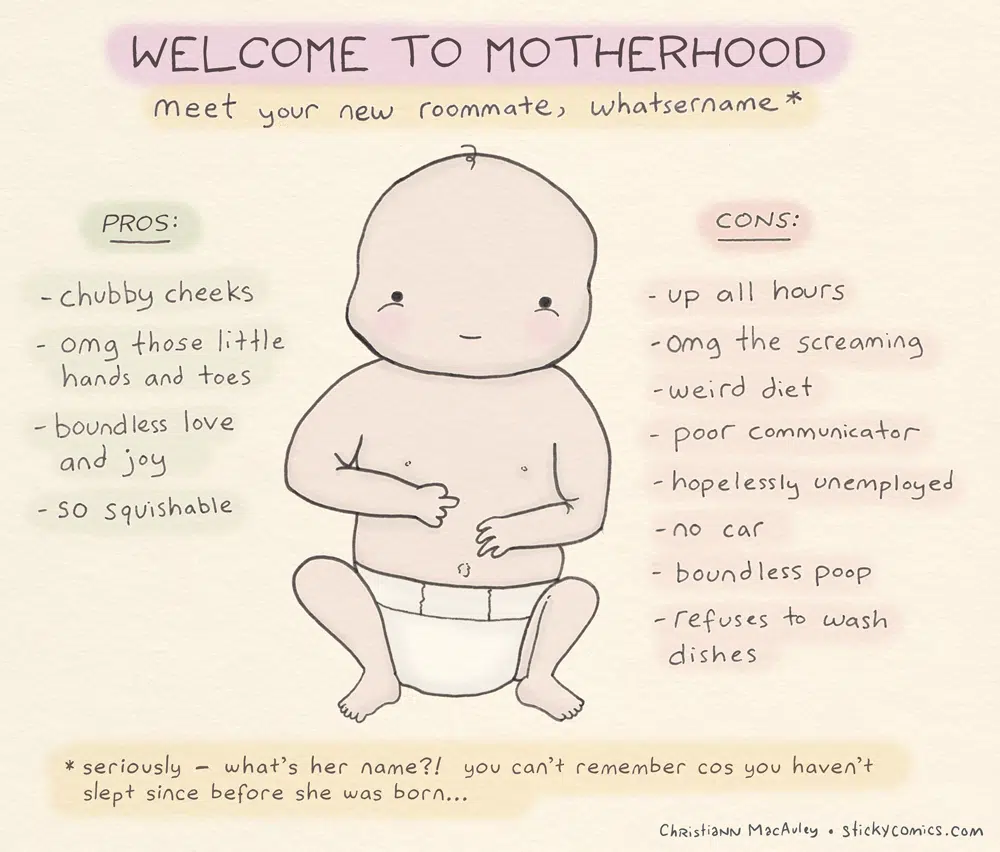 WELCOME TO MOTHERHOOD
meet your new roommate, whatsername*
PROS:
- chubby cheeks
- omg those little
hands and toes
- boundless love
and joy
- so squishable
CONS:
- up all hours
- omg the screaming
- weird diet
- poor communicator
- hopelessly unemployed
- no car
- boundless poop
- refuses to wash
dishes
* seriously – what's her name?! you can't remember cos you haven't
slept since before she was born...
Christiann MacAuley • stickycomics.com